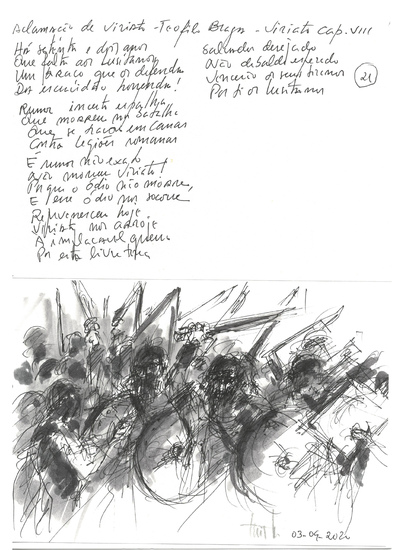 Aclamação de Viriato - Teofilo Braga - Viriato Cap. VIII
Há setenta e dois anos
Que falta aos Lusitanos
Um braço que os defenda
Da escravidão horrenda!
Rumor incerto espalha
Que morreu na batalha
Que se travou em Canas
Contra legiões romanas
É rumor não exacto
não morreu Viriato!
Porque o ódio não morre,
E esse ódio nos socorre
Rejuvenesceu hoje
Viriato nos arroje
À implacavel guerra
Por esta livre terra
Salvador desejado
não debalde esperado
Vencerão os seus
Por ti os Lusitanos
21
03-09-202